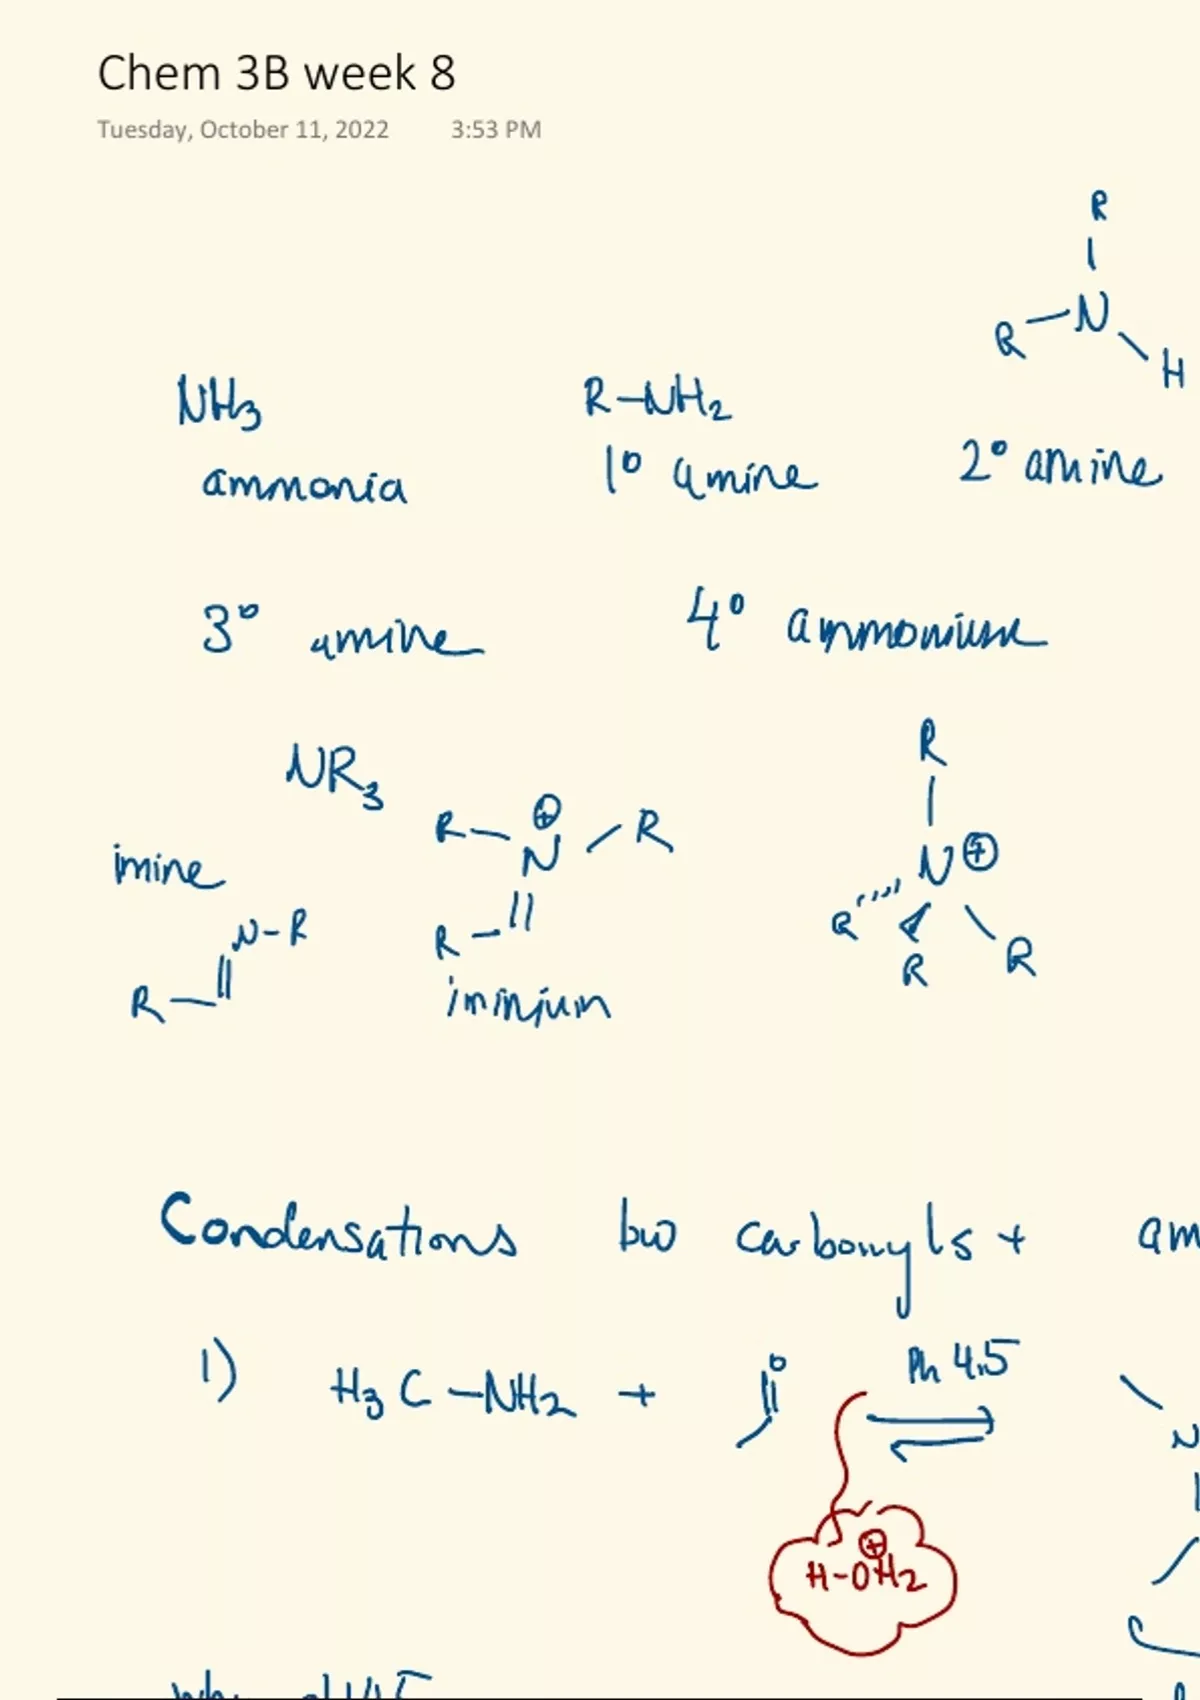 Chem 3B week 8
Tuesday, October 11, 2022 3:53 PM
R
R-N
H
NH₃ R-NH₂
ammonia 1° amine 2° amine
3° amine 4° ammonium
NR₃
R
R-N⊕-R
N⊕
imine
N-R
R
R
R R R
R
iminium
Condensations bw carbonyls + am
1) H₃C-NH₂ + O Ph 4.5
N
H-O⊕H₂